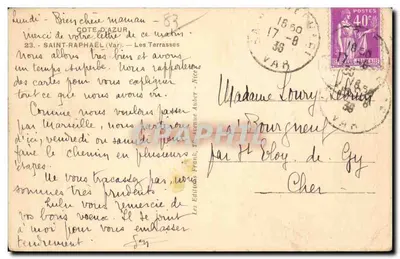 Lundi - Bien chère maman -
83
Merci de votre lettre de ce matin.
COTE D'AZUR
23. - SAINT-RAPHAËL (Var) - Les Terrasses
Nous allons très bien et avons
un temps superbe. Nous apportons
des cartes pour vous expliquer
tout ce que nous avons vu.
Comme nous voulons passer
par Marseille, nous partirons
d'ici vendredi ou samedi pour
faire le chemin en plusieurs
étapes.
Ne vous tracassez pas, nous
sommes très prudents.
Lulu vous remercie de
vos bons vœux. Il se joint
à moi pour vous embrasser
tendrement.
Les Editions
Nice
16 30
17 - 8
36
VAR
40c
Madame Loury
Bourgneuf
par St Eloy de Gy
Cher